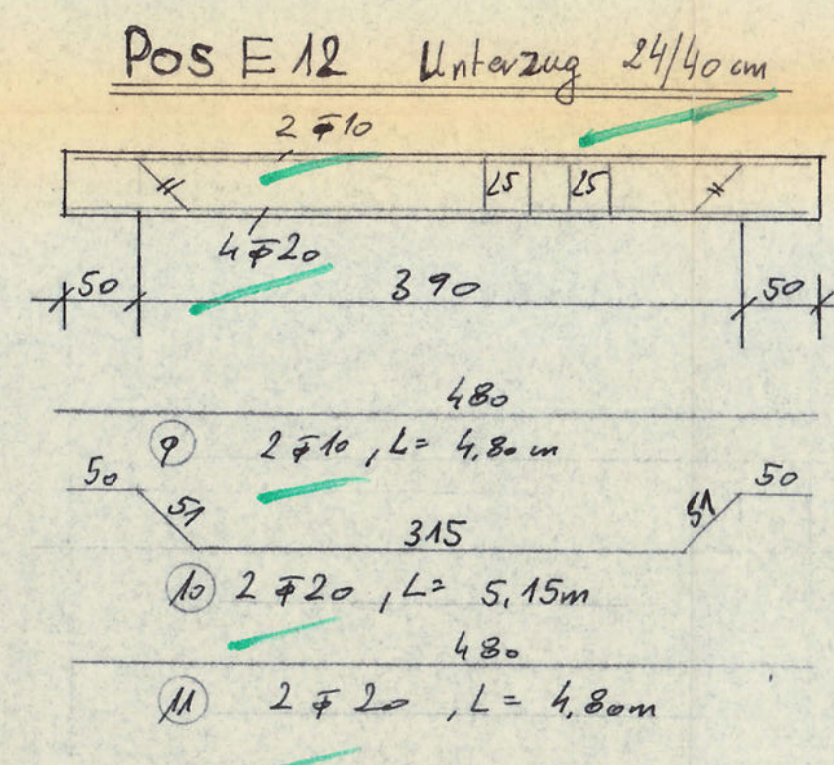 Pos E 12 Unterzug 24/40 cm
2 Φ 10
25 25
4 Φ 20
50 390 50
480
9 2 Φ 10, L= 4,80 m
50 51 315 51 50
10 2 Φ 20, L= 5,15m
480
11 2 Φ 20, L= 4,80m